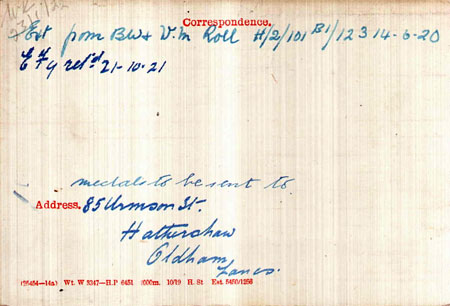 Correspondence.
Ext from BW & V.M Roll H/2/101 B1/123 14-6-20
E Hy retd 21-10-21
medals to be sent to
Address. 85 Urmson St.
Hathershaw
Oldham,
Lancs.
(26454-14a) Wt. W 3347-H.P 6451 1000m. 10/19 H. St Est. 5460/1256